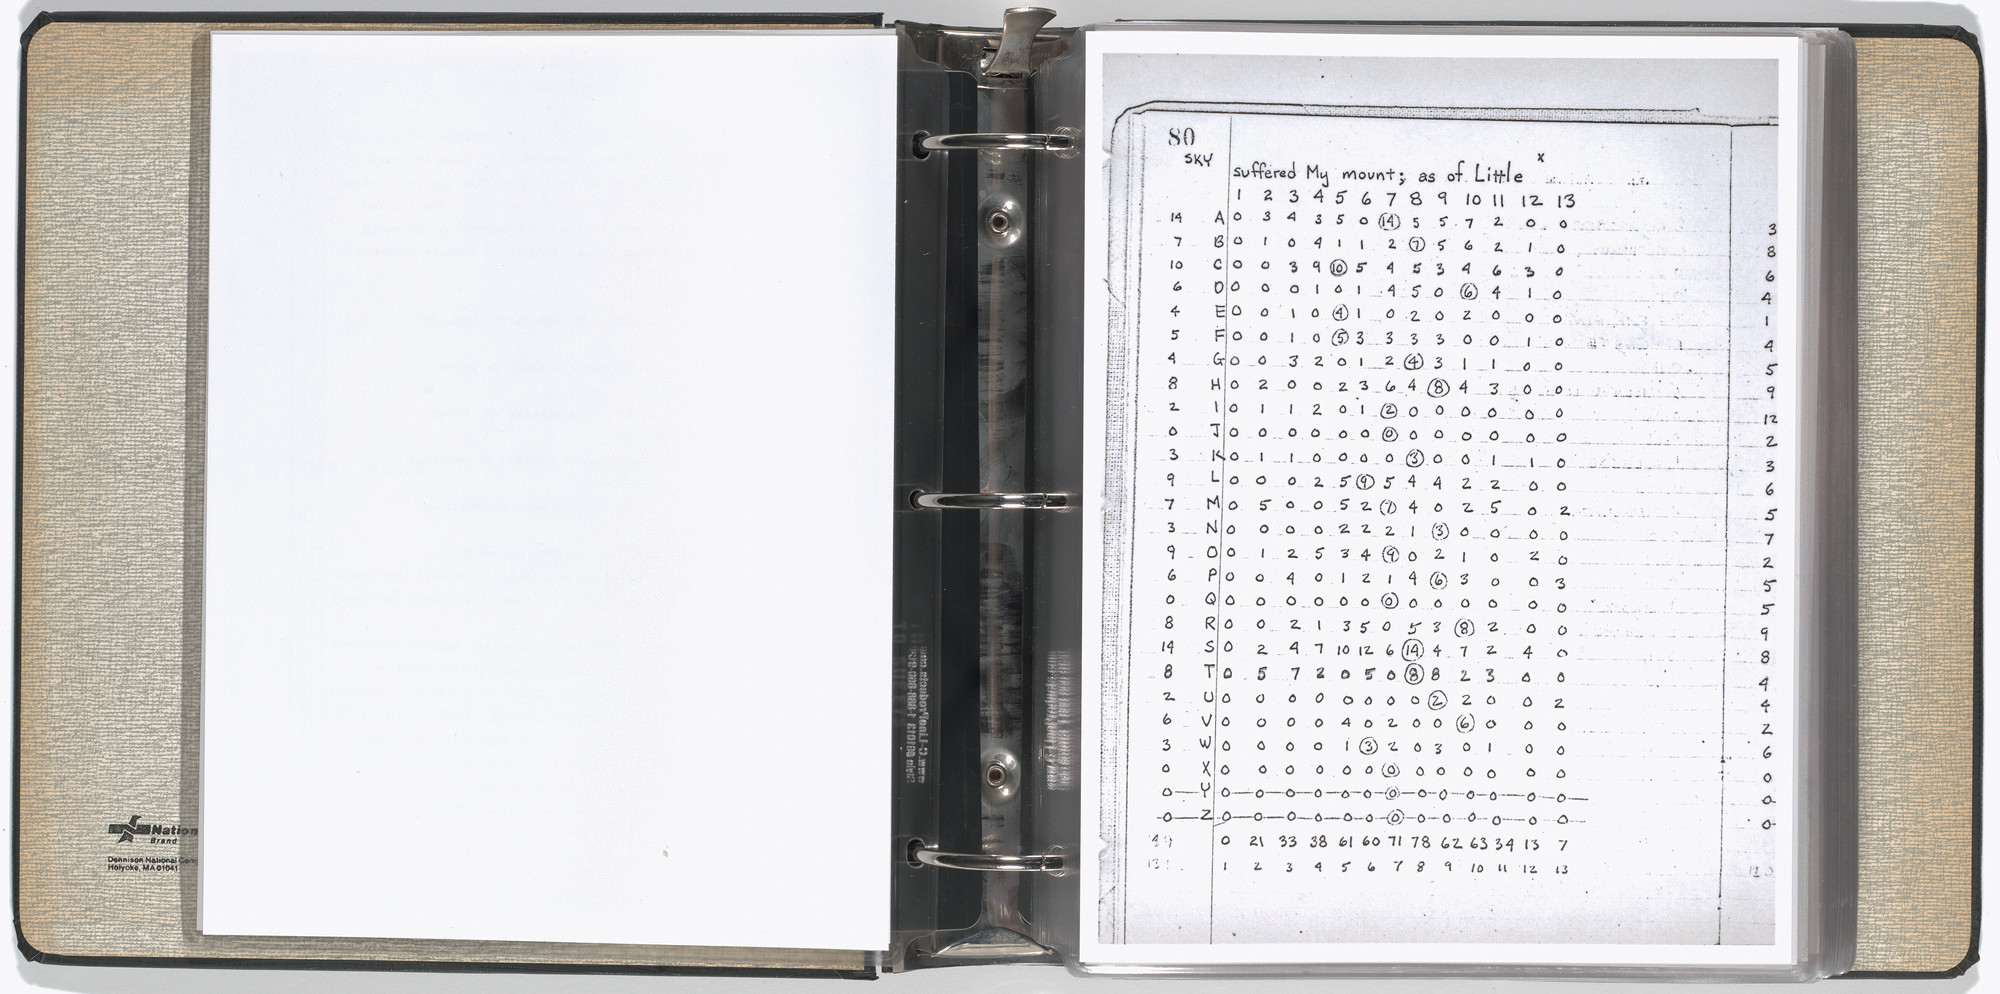 Nation
Brand
Dennison National Com
Holyoke, MA 01041
80
SKY
suffered My mount; as of Little x
1 2 3 4 5 6 7 8 9 10 11 12 13
14 A 0 3 4 3 5 0 14 5 5 7 2 0 0
7 B 0 1 0 4 1 1 2 7 5 6 2 1 0
10 C 0 0 3 9 10 5 4 5 3 4 6 3 0
6 D 0 0 0 1 0 1 4 5 0 6 4 1 0
4 E 0 0 1 0 4 1 0 2 0 2 0 0 0
5 F 0 0 1 0 5 3 3 3 3 0 0 1 0
4 G 0 0 3 2 0 1 2 4 3 1 1 0 0
8 H 0 2 0 0 2 3 6 4 8 4 3 0 0
2 I 0 1 1 2 0 1 2 0 0 0 0 0 0
0 J 0 0 0 0 0 0 0 0 0 0 0 0 0
3 K 0 1 1 0 0 0 0 3 0 0 1 1 0
9 L 0 0 0 2 5 9 5 4 4 2 2 0 0
7 M 0 5 0 0 5 2 7 4 0 2 5 0 2
3 N 0 0 0 0 2 2 2 1 3 0 0 0 0
9 O 0 1 2 5 3 4 9 0 2 1 0 2 0
6 P 0 0 4 0 1 2 1 4 6 3 0 0 3
0 Q 0 0 0 0 0 0 0 0 0 0 0 0 0
8 R 0 0 2 1 3 5 0 5 3 8 2 0 0
14 S 0 2 4 7 10 12 6 14 4 7 2 4 0
8 T 0 5 7 2 0 5 0 8 8 2 3 0 0
2 U 0 0 0 0 0 0 0 0 2 2 0 0 2
6 V 0 0 0 0 4 0 2 0 0 6 0 0 0
3 W 0 0 0 0 1 3 2 0 3 0 1 0 0
0 X 0 0 0 0 0 0 0 0 0 0 0 0 0
0 Y 0 0 0 0 0 0 0 0 0 0 0 0 0
0 Z 0 0 0 0 0 0 0 0 0 0 0 0 0
0 21 33 38 61 60 71 78 62 63 34 13 7
1 2 3 4 5 6 7 8 9 10 11 12 13
3
8
6
4
1
4
5
9
12
2
3
6
5
7
2
5
5
9
8
4
4
2
6
0
0
0